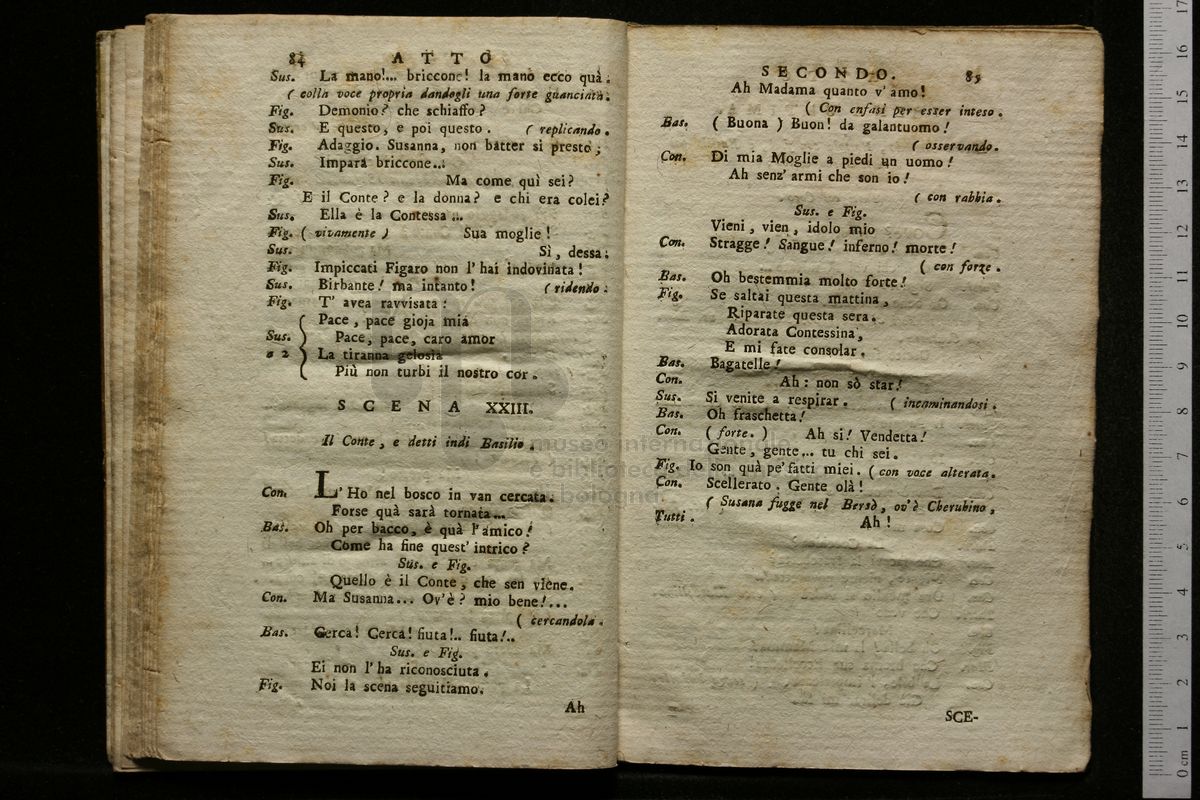 84 ATTO
Sus. La mano!... briccone! la mano ecco quà.
( colla voce propria dandogli una forte guanciata.
Fig. Demonio? che schiaffo?
Sus. E questo, e poi questo. ( replicando.
Fig. Adaggio. Susanna, non batter sì presto;
Sus. Impara briccone...
Fig. Ma come quì sei?
E il Conte? e la donna? e chi era colei?
Sus. Ella è la Contessa ...
Fig. ( vivamente ) Sua moglie!
Sus. Sì, dessa.
Fig. Impiccati Figaro non l'hai indovinata!
Sus. Birbante! ma intanto! ( ridendo.
Fig. T' avea ravvisata:
Pace, pace gioja mia
Sus. Pace, pace, caro amor
a 2 La tiranna gelosia
Più non turbi il nostro cor.
SCENA XXIII.
Il Conte, e detti indi Basilio.
Con. L'Ho nel bosco in van cercata.
Forse quà sarà tornata...
Bas. Oh per bacco, è quà l'amico!
Come ha fine quest' intrico?
Sus. e Fig.
Quello è il Conte, che sen viene.
Con. Ma Susanna... Ov'è? mio bene!...
( cercandola.
Bas. Cerca! Cerca! fiuta!.. fiuta!..
Sus. e Fig.
Ei non l'ha riconosciuta.
Fig. Noi la scena seguitiamo.
Ah
SECONDO. 85
Ah Madama quanto v'amo!
( Con enfasi per esser inteso.
Bas. ( Buona ) Buon! da galantuomo!
( osservando.
Con. Di mia Moglie a piedi un uomo!
Ah senz' armi che son io!
( con rabbia.
Sus. e Fig.
Vieni, vien, idolo mio
Con. Stragge! Sangue! inferno! morte!
( con forze.
Bas. Oh bestemmia molto forte!
Fig. Se saltai questa mattina,
Riparate questa sera.
Adorata Contessina,
E mi fate consolar.
Bas. Bagatelle!
Con. Ah: non sò star!
Sus. Si venite a respirar. ( incaminandosi.
Bas. Oh fraschetta!
Con. ( forte. ) Ah si! Vendetta!
Gente, gente... tu chi sei.
Fig. Io son quà pe' fatti miei. ( con voce alterata.
Con. Scellerato. Gente olà!
( Susana fugge nel Bersò, ov'è Cherubino,
Tutti. Ah!
SCE-
museo internazionale
e biblioteca della
di bologna
0 cm 1 2 3 4 5 6 7 8 9 10 11 12 13 14 15 16 17